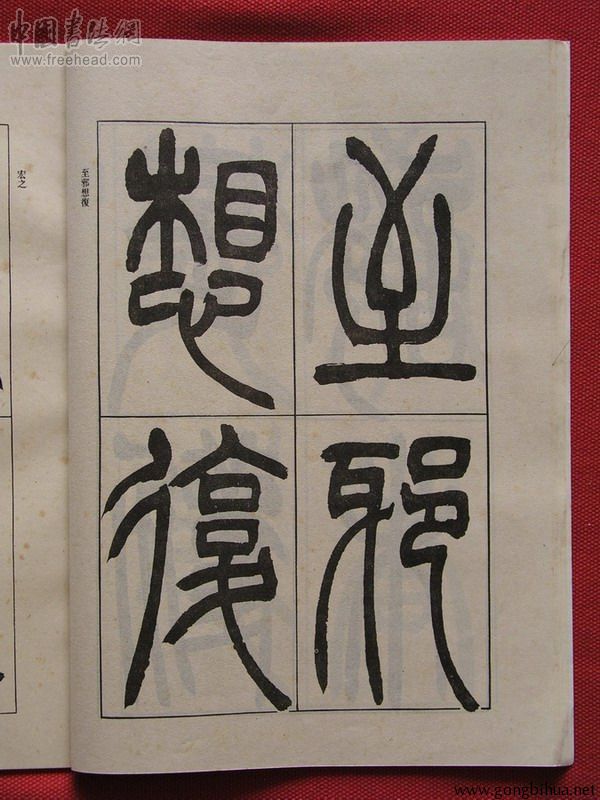 中国書法網
www.freehead.com
至邪
想復
至邪想復
宏之
www.gongbihua.net